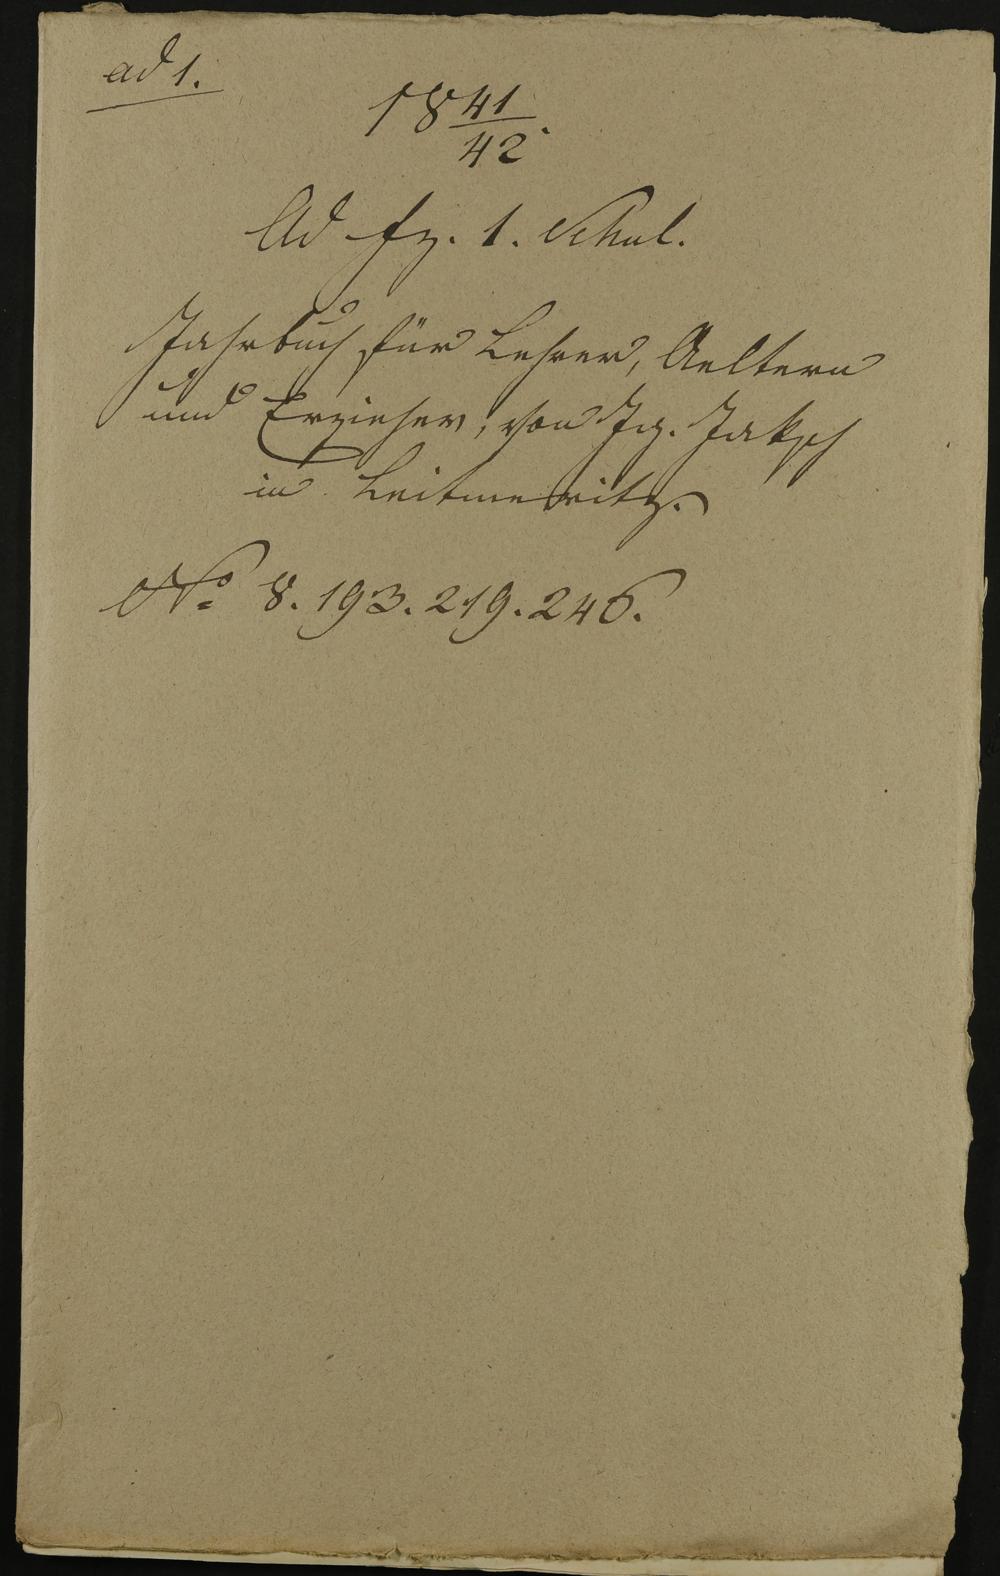 ad 1.
18 41/42.
Ad fz. 1. Schul.
Jahrbuch für Lehrer, Aeltern
und Erzieher, von Ig. Jaksch
in Leitmeritz.
No 8. 193. 219. 246.